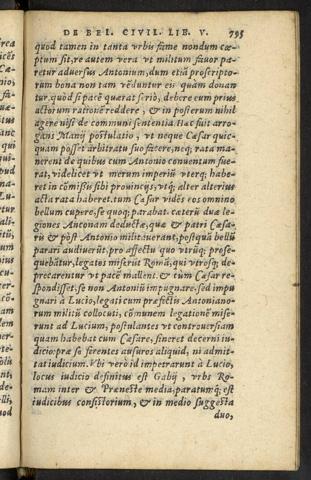 DE BEL. CIVIL. LIB. V. 795
quod tamen in tanta vrbis fame nondum cœ-
ptum sit, re autem vera vt militum fauor pa-
retur aduersus Antonium, dum etiã proscripto-
rum bona non tam vẽduntur eis quàm donan
tur. quòd si pacẽ quærat seriò, debere eum prius
actorum rationẽ reddere, & in posterum nihil
agere nisi de communi sententia. Hæc fuit arro-
gans Manij postulatio, vt neque Cæsar quic-
quam posset arbitratu suo facere, neq; rata ma-
nerent de quibus cum Antonio conuentum fue-
rat, videlicet vt merum imperiũ vterq; habe-
ret in cõmissis sibi prouincijs, vtq; alter alterius
acta rata haberet. tum Cæsar vidẽs eos omnino
bellum cupere, se quoq; parabat. cæterũ duæ le-
giones Anconam deductæ, quæ & patri Cæsa-
ris & pòst Antonio militauerant, postquã bellũ
parari audiuerũt, pro affectu quo vtrũq; prose-
quebãtur, legatos miserũt Romã, qui vtrosq; de-
precarentur vt pacẽ mallent. & cùm Cæsar re-
spondisset, se non Antoniũ impugnare, sed impu
gnari à Lucio, legati cum præfectis Antoniano-
rum militũ collocuti, cõmunem legationẽ mise-
runt ad Lucium, postulantes vt controuersiam
quam habebat cum Cæsare, sineret decerni iu-
dicio: præ se ferentes ausuros aliquid, ni admit-
tat iudicium. Vbi verò id impetrarunt à Lucio,
locus iudicio definitus est Gabij, vrbs Ro-
mam inter & Præneste media, paratumq́; est
iudicibus consistorium, & in medio suggesta
duo,